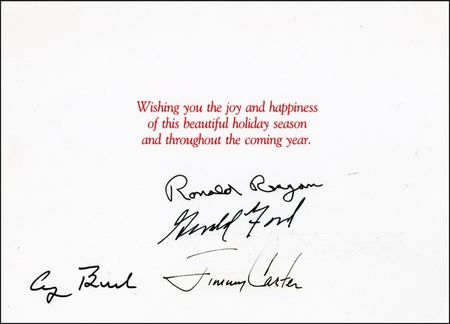 Wishing you the joy and happiness
of this beautiful holiday season
and throughout the coming year.
Ronald Reagan
Gerald Ford
Jimmy Carter
Bush